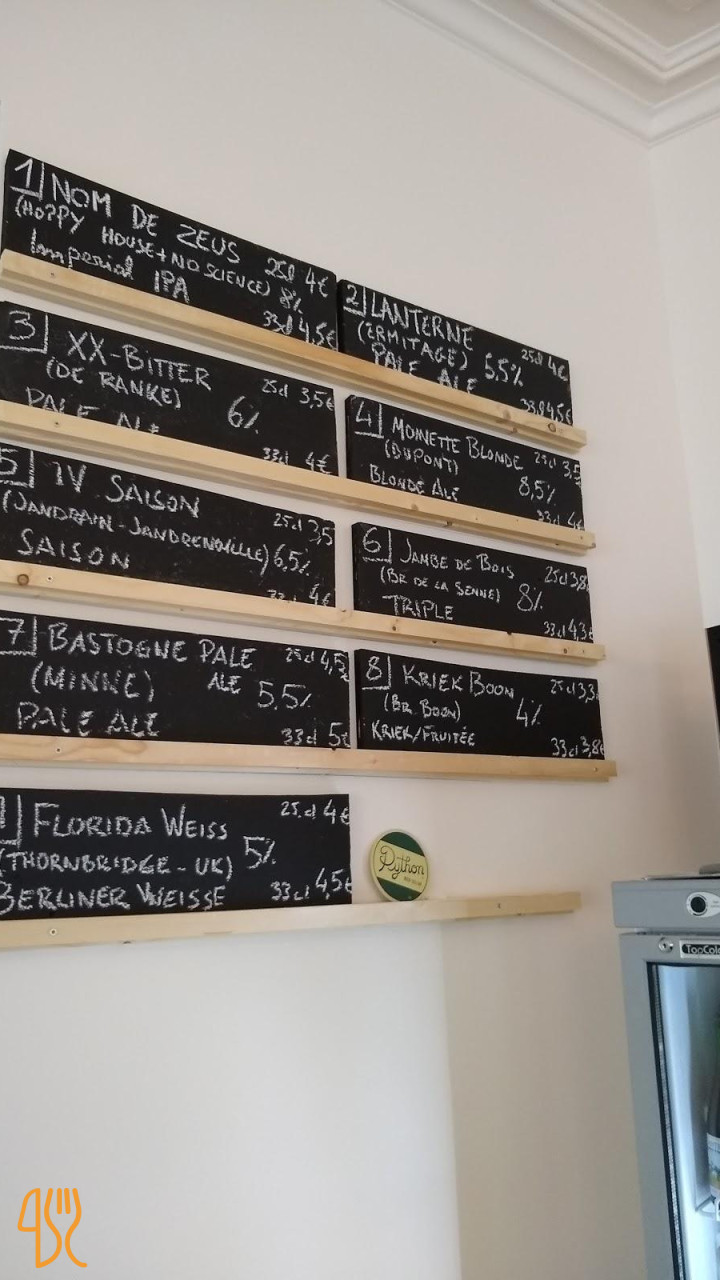 1 NOM DE ZEUS
(HOPPY HOUSE + NO SCIENCE) 8%
25cl 4€
Imperial IPA
33cl 4,5€
2 LANTERNE
(ERMITAGE) 5,5%
25cl 4€
PALE ALE
33cl 4,5€
3 XX-BITTER
(DE RANKE) 6%
25cl 3,5€
PALE ALE
33cl 4€
4 MOINETTE BLONDE
(DUPONT) 8,5%
25cl 3,5
BLONDE ALE
33cl 4€
5 IV SAISON
25cl 3,5
(JANDRAIN-JANDRENOUILLE) 6,5%
SAISON
33cl 4€
6 JAMBE DE BOIS
25cl 3,8€
(BR DE LA SENNE) 8%
TRIPLE
33cl 4,3€
7 BASTOGNE PALE ALE
25cl 4,5
(MINNE) 5,5%
PALE ALE
33cl 5€
8 KRIEK BOON
25cl 3,3
(BR. BOON) 4%
KRIEK/FRUITÉE
33cl 3,8€
FLORIDA WEISS
25cl 4€
(THORNBRIDGE - UK) 5%
BERLINER WEISSE
33cl 4,5€
Python